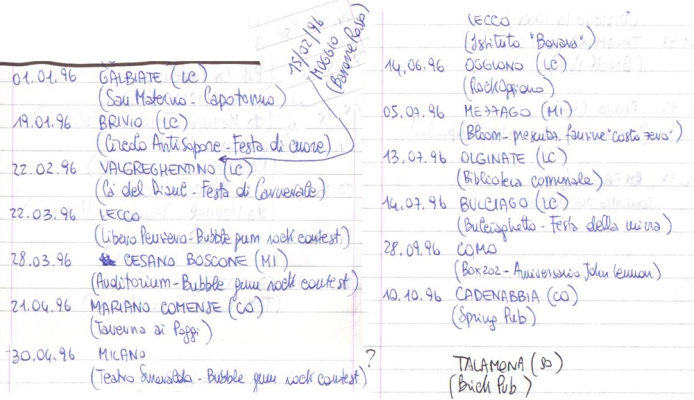 01.01.96 GALBIATE (LC)
(San Materno - Capodanno)
15/02/96
MOGGIO
(Barone Rosso)
19.01.96 BRIVIO (LC)
(Circolo Antisapore - Festa di cuore)
22.02.96 VALGREGHENTINO (LC)
(Cà del Diaul - Festa di Carnevale)
22.03.96 LECCO
(Libero Pensiero - Bubble gum rock contest)
28.03.96 CESANO BOSCONE (MI)
(Auditorium - Bubble gum rock contest)
21.04.96 MARIANO COMENSE (CO)
(Taverna ai Poggi)
30.04.96 MILANO
(Teatro Smeraldo - Bubble gum rock contest) ?
LECCO
(Istituto "Bovara")
14.06.96 OGGIONO (LC)
(RockOggiono)
05.07.96 MEZZAGO (MI)
(Bloom - presentaz. fanzine "costo zero")
13.07.96 OLGINATE (LC)
(Biblioteca comunale)
14.07.96 BULCIAGO (LC)
(Bulciaghetto - Festa della birra)
28.09.96 COMO
(Box 202 - Anniversario John Lennon)
10.10.96 CADENABBIA (CO)
(Spring Pub)
TALAMONA (SO)
(Brick Pub)